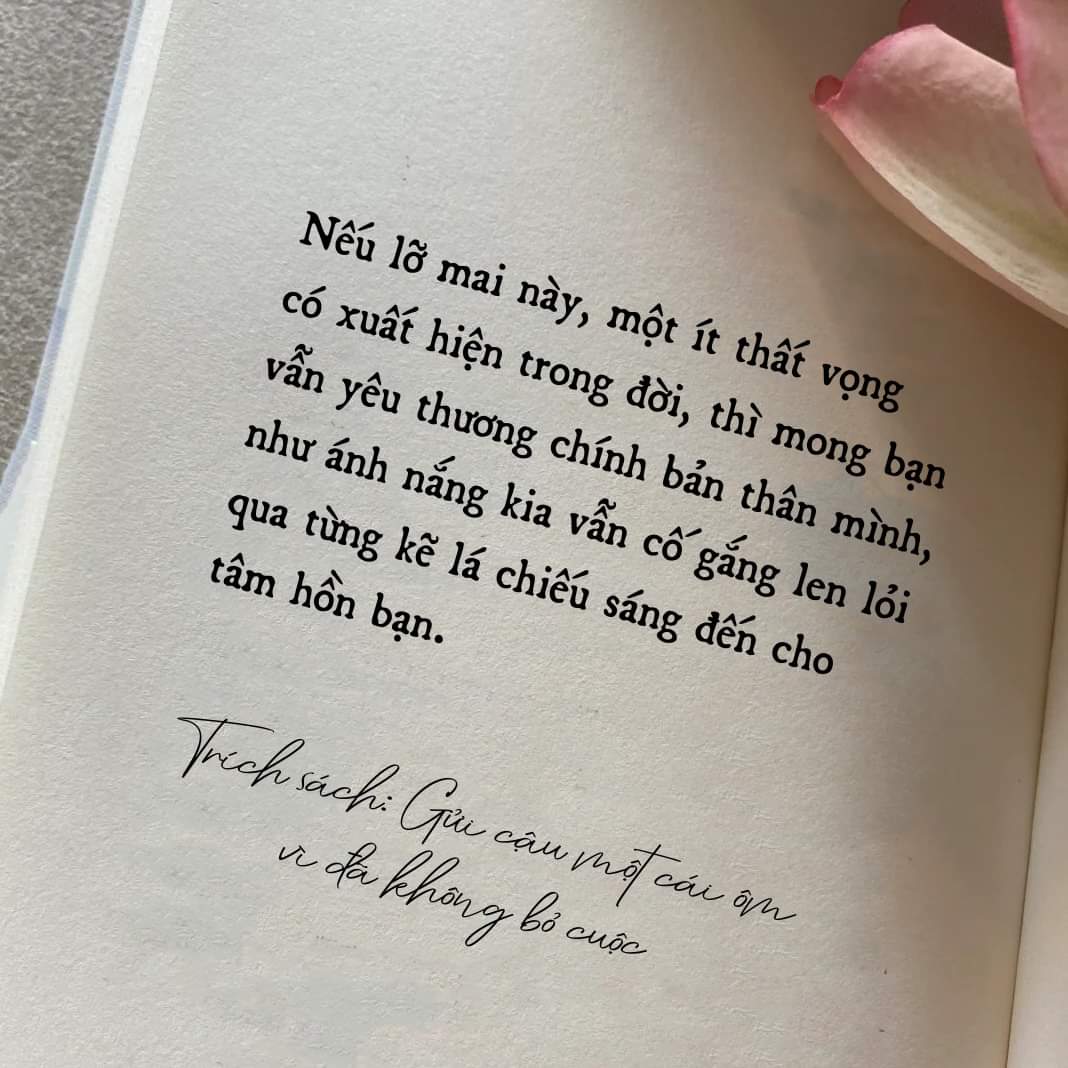 Nếu lỡ mai này, một ít thất vọng
có xuất hiện trong đời, thì mong bạn
vẫn yêu thương chính bản thân mình,
như ánh nắng kia vẫn cố gắng len lỏi
qua từng kẽ lá chiếu sáng đến cho
tâm hồn bạn.
Trích sách: Gửi cậu một cái ôm
vì đã không bỏ cuộc